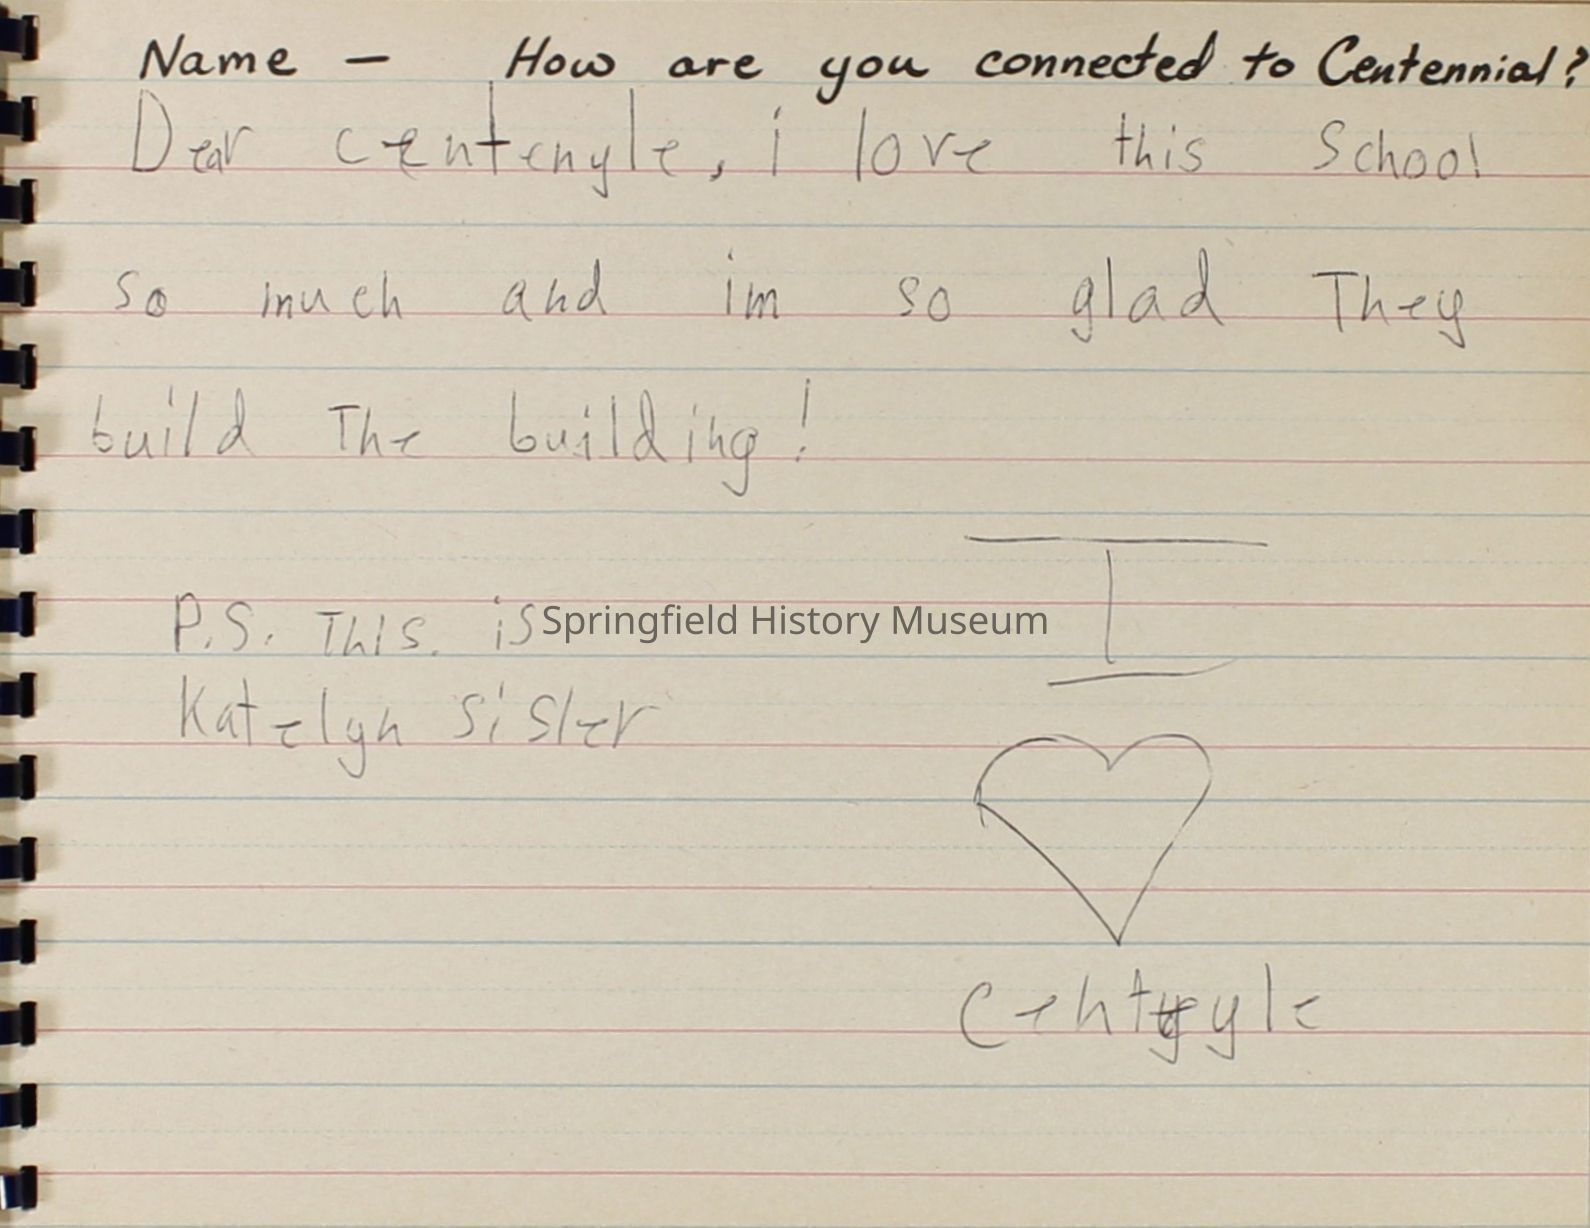 Name – How are you connected to Centennial?
Dear centenyle, i love this School
so much and im so glad They
build The building!
P.S. This. is
Springfield History Museum
Katelyn sister
I